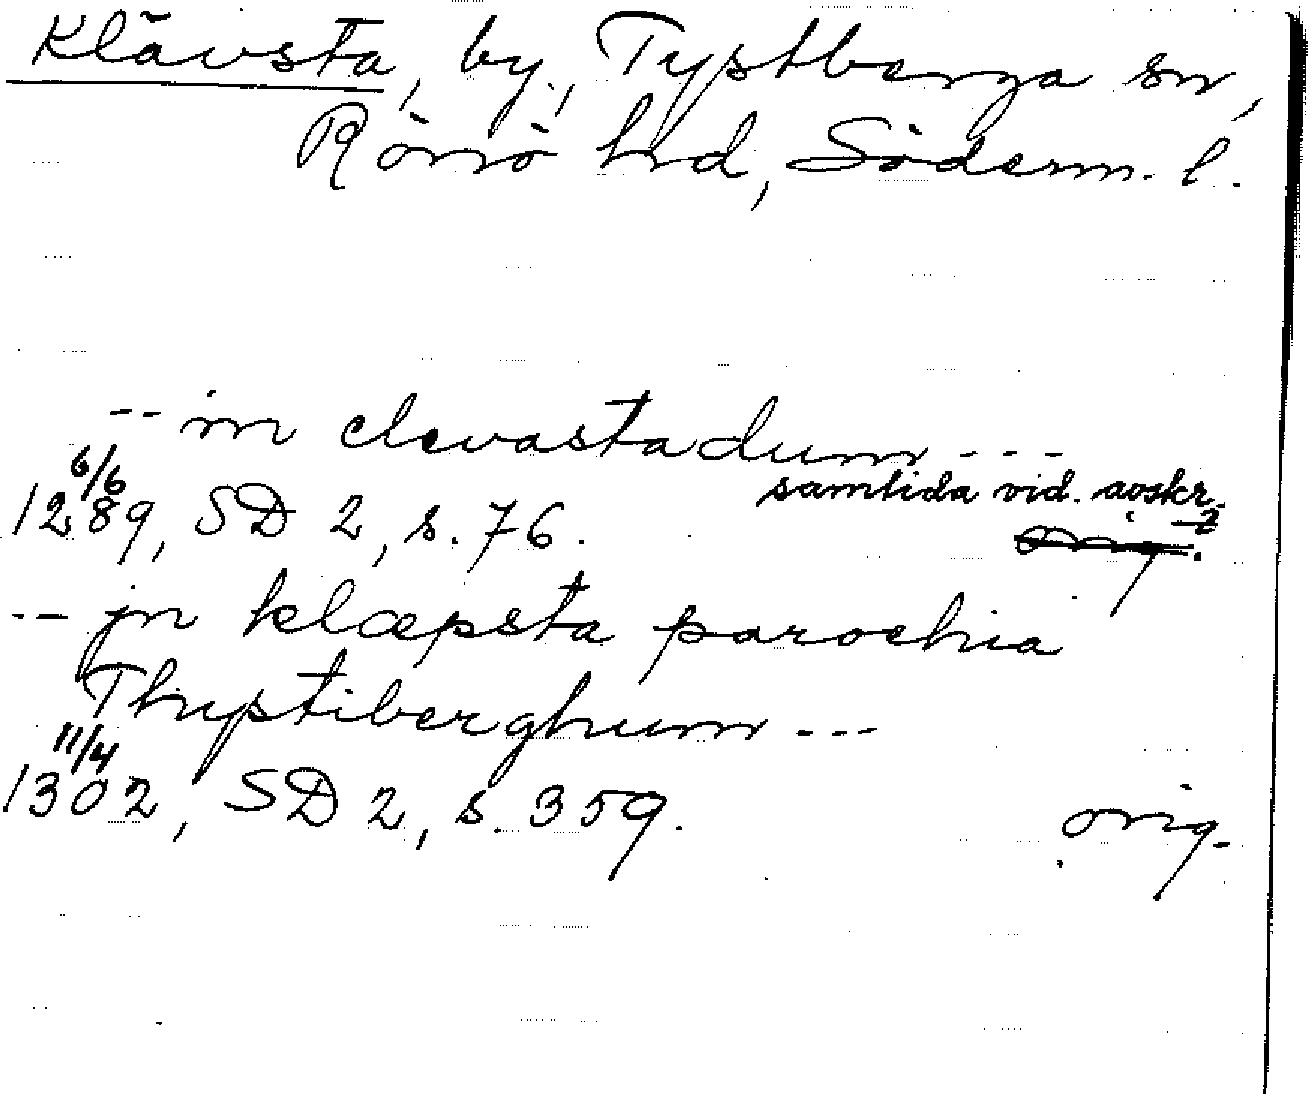 Klävsta, by, Tystberga sn,
Rönö hrd, Söderm. l.
-- in clevastadum ---
6/6 samtida vid. avskr.
1289, SD 2, s. 76. orig.
-- jn klæpsta parochia
Thystiberghum ---
11/4
1302, SD 2, s. 359. orig.